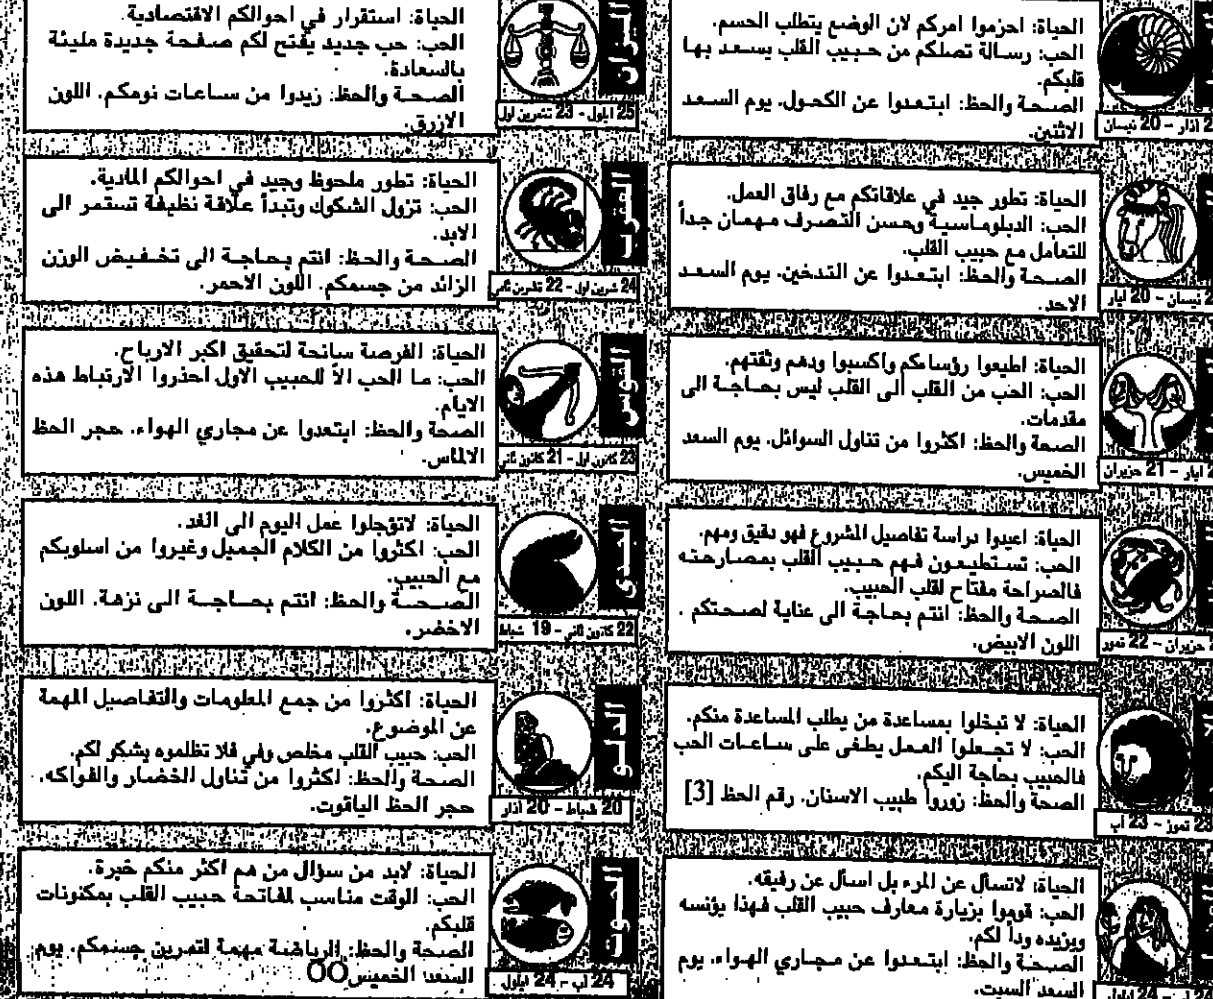 الحياة: احزموا امركم لان الوضع يتطلب الحسم.
الحب: رسالة تصلكم من حبيب القلب يسعد بها
قلبكم.
الصحة والحظ: ابتعدوا عن الكحول. يوم السعد
الاثنين.
اذار - 20 نيسان
الحياة: تطور جيد في علاقاتكم مع رفاق العمل.
الحب: الدبلوماسية وحسن التصرف مهمان جداً
للتعامل مع حبيب القلب.
الصحة والحظ: ابتعدوا عن التدخين. يوم السعد
الاحد.
نيسان - 20 ايار
الحياة: اطيعوا رؤساءكم واكسبوا ودهم وثقتهم.
الحب: الحب من القلب الى القلب ليس بحاجة الى
مقدمات.
الصحة والحظ: اكثروا من تناول السوائل. يوم السعد
الخميس.
ايار - 21 حزيران
الحياة: اعيدوا دراسة تفاصيل المشروع فهو دقيق ومهم.
الحب: تستطيعون فهم حبيب القلب بمصارحته
فالصراحة مفتاح لقلب الحبيب.
الصحة والحظ: انتم بحاجة الى عناية لصحتكم .
اللون الابيض.
حزيران - 22 تموز
الحياة: لا تبخلوا بمساعدة من يطلب المساعدة منكم.
الحب: لا تجعلوا العمل يطغى على ساعات الحب
فالحبيب بحاجة اليكم.
الصحة والحظ: زوروا طبيب الاسنان. رقم الحظ [3]
23 تموز - 23 آب
الحياة: لاتسأل عن المرء بل اسأل عن رفيقه.
الحب: قوموا بزيارة معارف حبيب القلب فهذا يؤنسه
ويزيده وداً لكم.
الصحة والحظ: ابتعدوا عن مجاري الهواء. يوم
السعد السبت.
24 آب - 24 ايلول
الميزان
الحياة: استقرار في احوالكم الاقتصادية.
الحب: حب جديد يفتح لكم صفحة جديدة مليئة
بالسعادة.
الصحة والحظ: زيدوا من ساعات نومكم. اللون
الازرق.
25 ايلول - 23 تشرين اول
العقرب
الحياة: تطور ملحوظ وجيد في احوالكم المادية.
الحب: تزول الشكوك وتبدأ علاقة نظيفة تستمر الى
الابد.
الصحة والحظ: انتم بحاجة الى تخفيض الوزن
الزائد من جسمكم. اللون الاحمر.
24 تشرين اول - 22 تشرين ثاني
القوس
الحياة: الفرصة سانحة لتحقيق اكبر الارباح.
الحب: ما الحب الاّ للحبيب الاول احذروا الارتباط هذه
الايام.
الصحة والحظ: ابتعدوا عن مجاري الهواء. حجر الحظ
الالماس.
23 كانون اول - 21 كانون ثاني
الجدي
الحياة: لاتؤجلوا عمل اليوم الى الغد.
الحب: اكثروا من الكلام الجميل وغيروا من اسلوبكم
مع الحبيب.
الصحة والحظ: انتم بحاجة الى نزهة. اللون
الاخضر.
22 كانون ثاني - 19 شباط
الدلو
الحياة: اكثروا من جمع المعلومات والتفاصيل المهمة
عن الموضوع.
الحب: حبيب القلب مخلص وفي فلا تظلموه بشكو لكم.
الصحة والحظ: اكثروا من تناول الخضار والفواكه.
حجر الحظ الياقوت.
20 شباط - 20 آذار
الحوت
الحياة: لابد من سؤال من هم اكثر منكم خبرة.
الحب: الوقت مناسب لمفاتحة حبيب القلب بمكنونات
قلبكم.
الصحة والحظ: الرياضة مهمة لتمرين جسمكم. يوم
السعد الخميس
24 آب - 24 ايلول